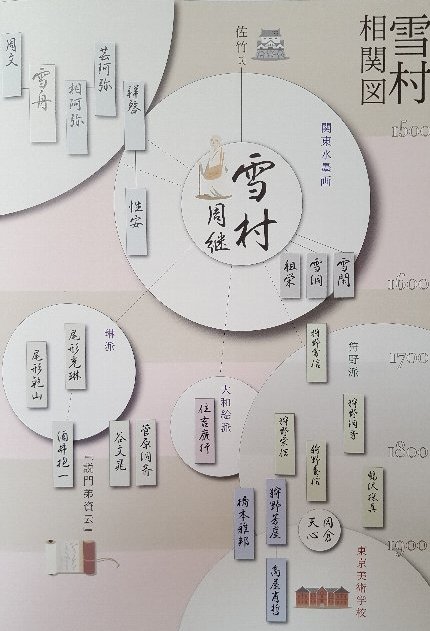 雪村
相関図
1500
1600
1700
1800
1900
佐竹氏
関東水墨画
雪村
周継
周文
雪舟
相阿弥
芸阿弥
祥啓
性安
祖栄
雪洞
雪閑
琳派
尾形光琳
尾形乾山
酒井抱一
谷文晁
菅原洞斎
『説門弟資云』
大和絵派
住吉廣行
狩野派
狩野常信
狩野洞春
狩野栄信
狩野養信
狩野芳崖
橋本雅邦
高屋肖哲
岡倉
天心
東京美術学校